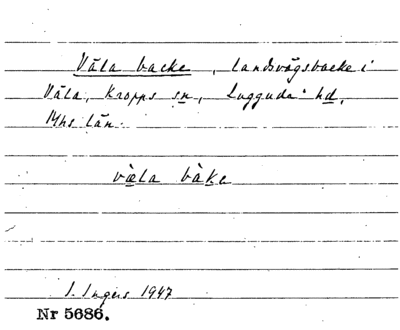 Väla backe, landsvägsbacke i
Väla, Kropps sn, Luggude hd,
Mhs län.
væla bàke
I. Ingers 1947
Nr 5686.